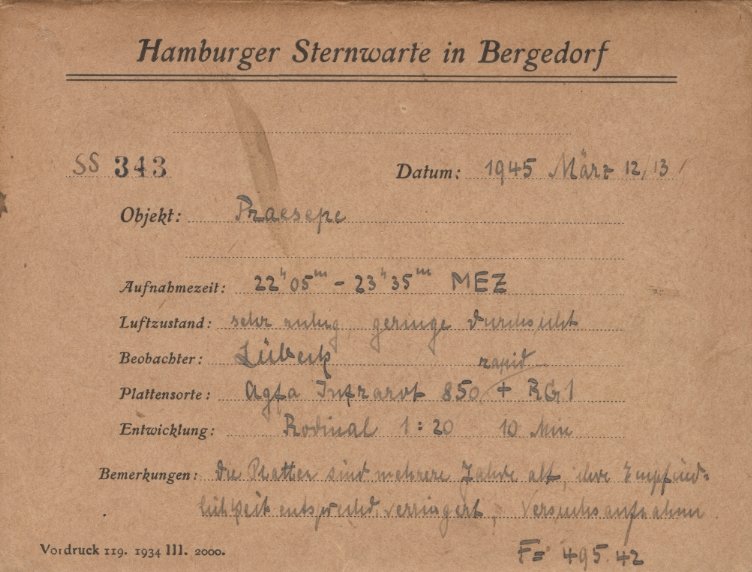 Hamburger Sternwarte in Bergedorf
SS 343 Datum: 1945 März 12/13
Objekt: Praesepe
Aufnahmezeit: 22h 05m - 23h 35m MEZ
Luftzustand: sehr ruhig, geringe Durchsicht
Beobachter: Lübeck
rapid
Plattensorte: Agfa Infrarot 850 + RG1
Entwicklung: Rodinal 1:20 10 Min
Bemerkungen: Die Platten sind mehrere Jahre alt, ihre Empfind-
lichkeit entsprechd. verringert, Versuchsaufnahme
Vordruck 119. 1934 III. 2000. F= 495.42